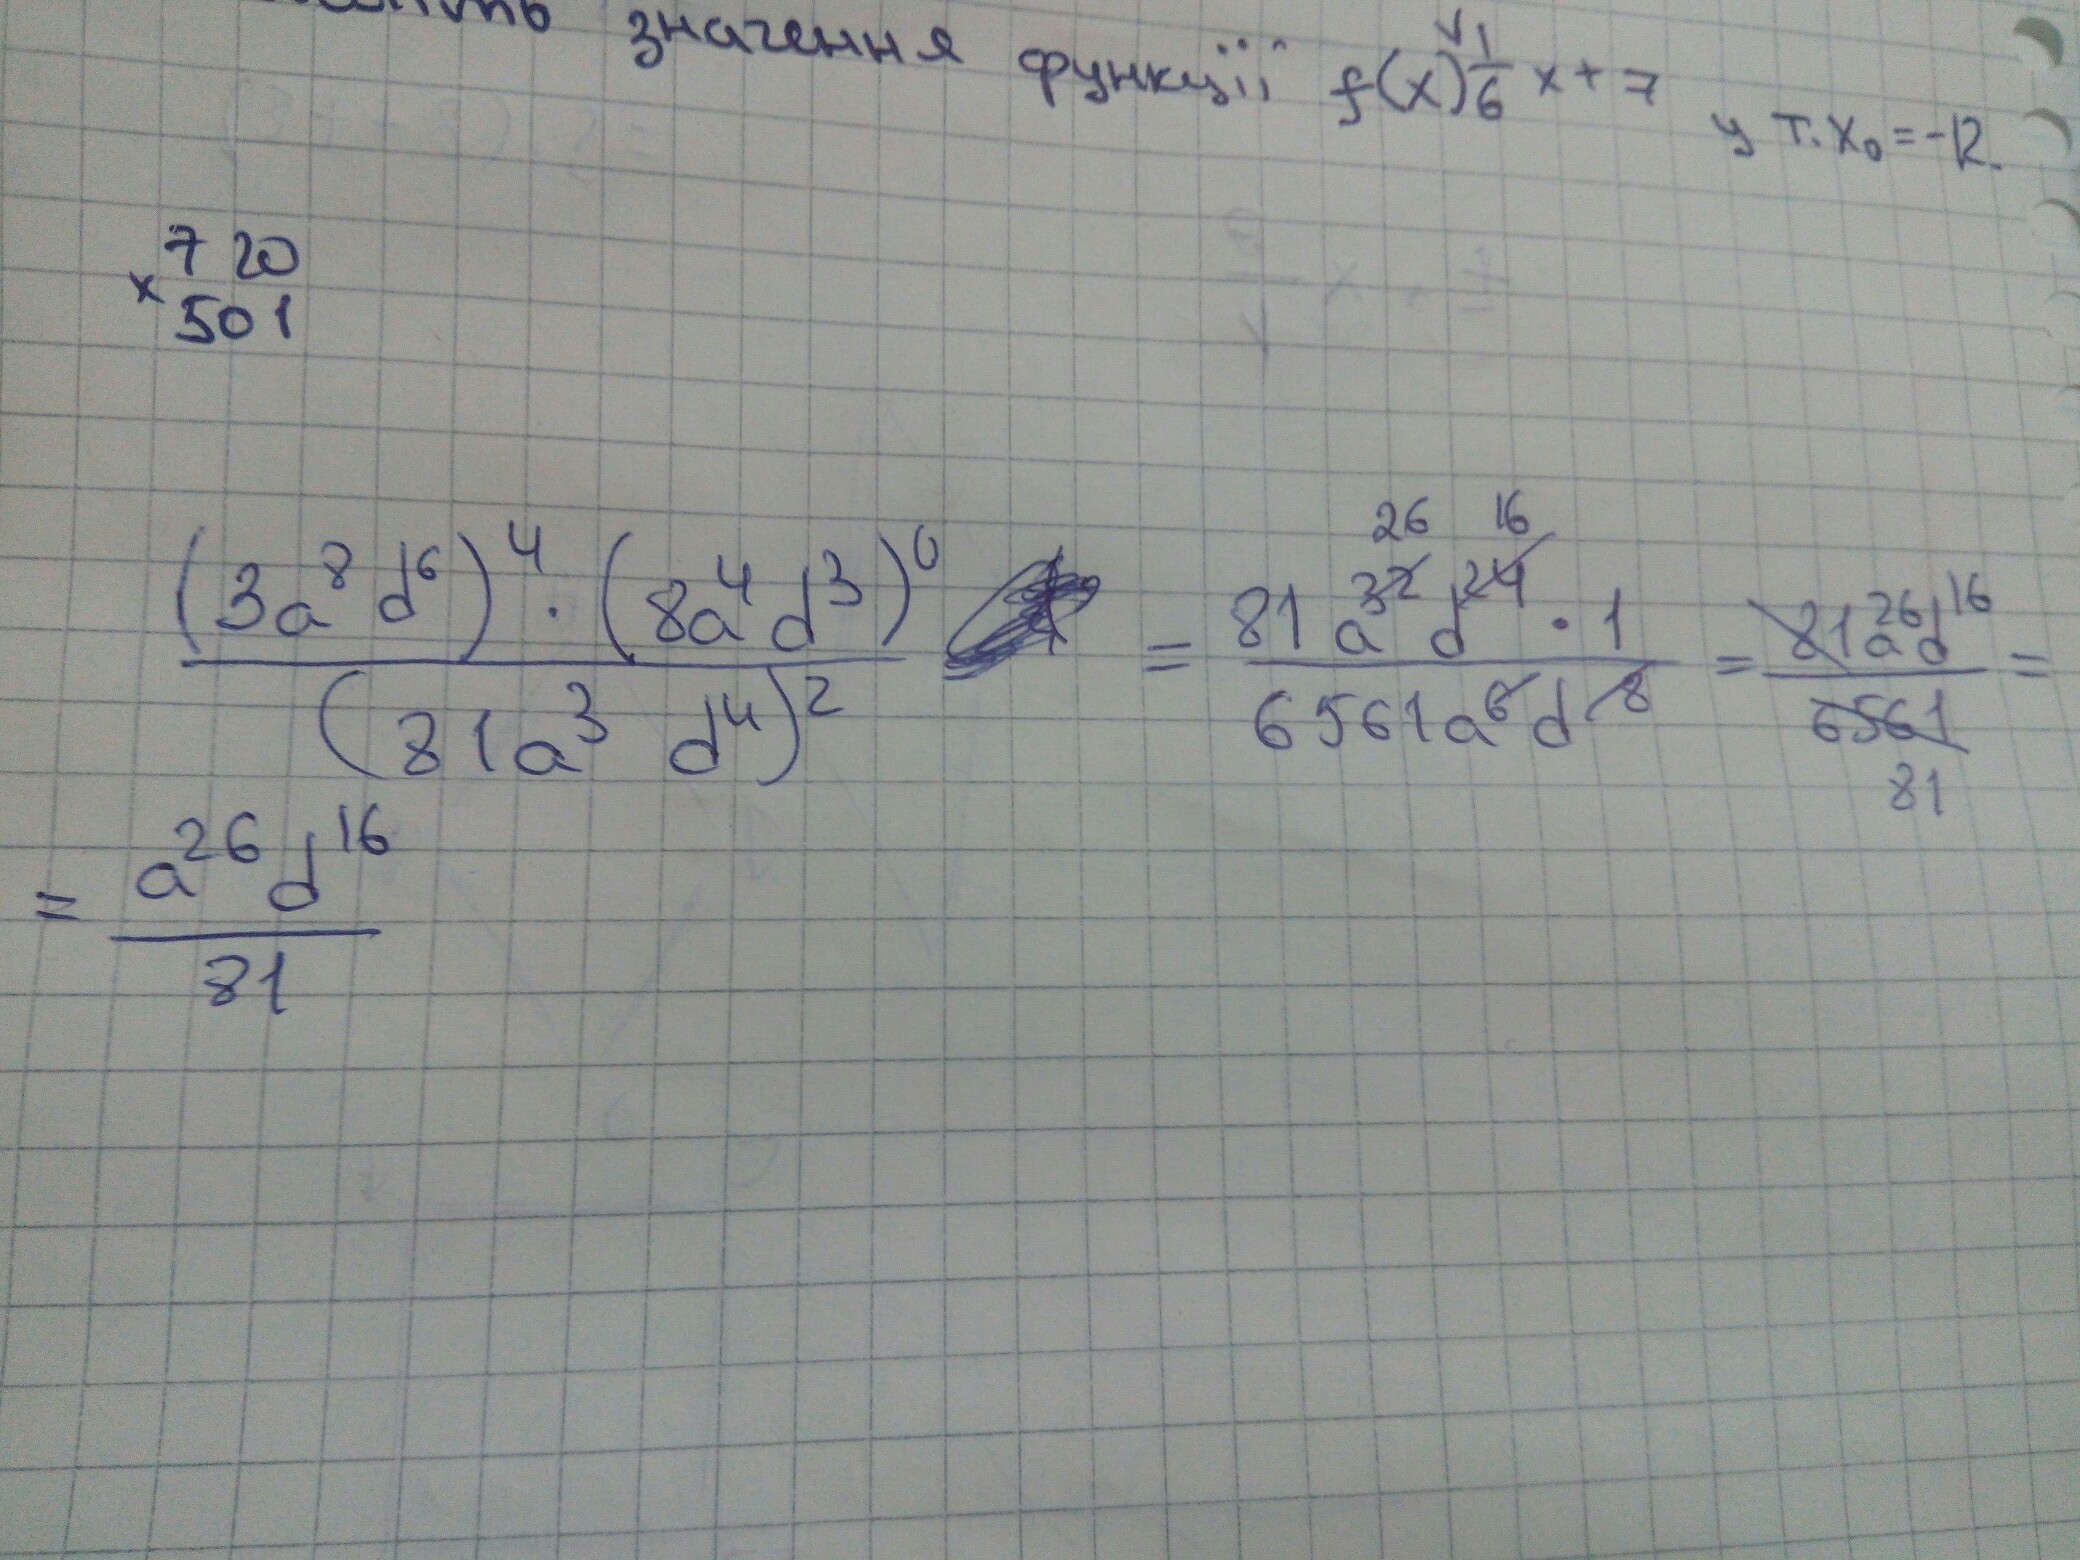 значення функції f(x) 1/6 x + 7 у т. x₀ = -12.
7 20
× 501
(3a⁸d⁶)⁴ · (8a⁴d³)⁰ / (81a³ d⁴)² = 81 a³² d²⁴ · 1 / 6561a⁶d⁸ = 81a²⁶d¹⁶ / 6561 =
26 16
81
= a²⁶d¹⁶ / 81